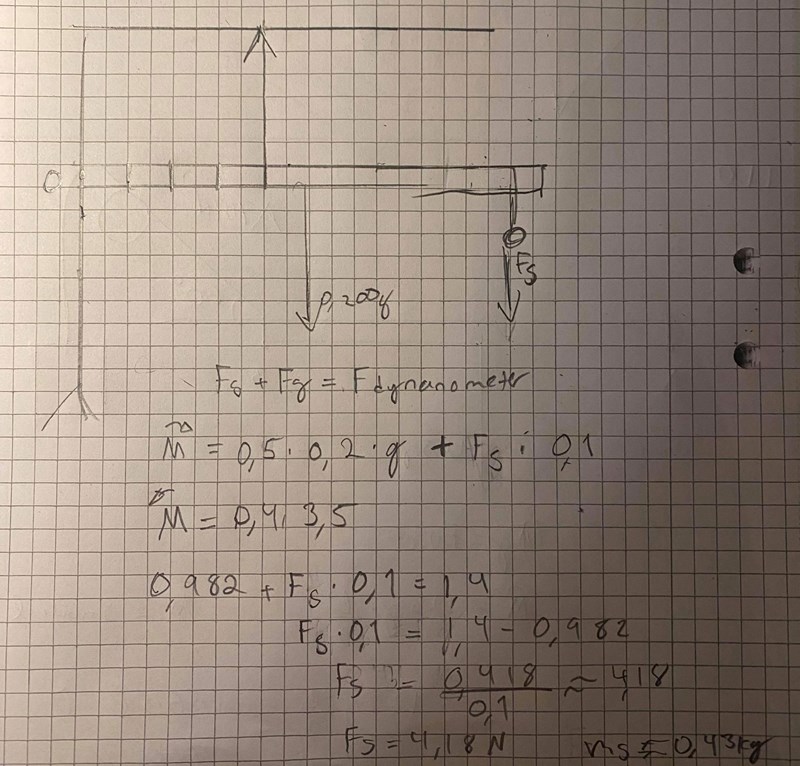 0
0,200g
Fs
Fs + Fg = F dynanometer
M = 0,5 · 0,2 · g + Fs · 0,1
M = 0,4 · 3,5
0,982 + Fs · 0,1 = 1,4
Fs · 0,1 = 1,4 - 0,982
Fs = 0,418 / 0,1 ≈ 4,18
Fs = 4,18 N ms = 0,43 kg